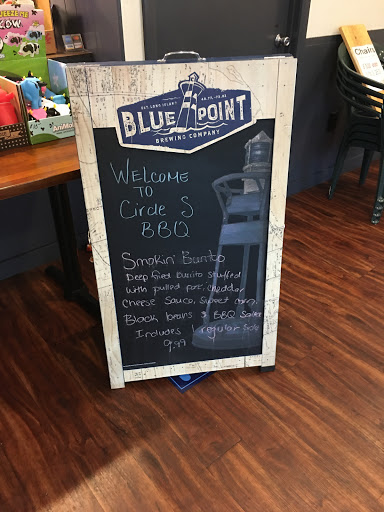 SQUEEZE ME
EST. LONG ISLAND
BLUE POINT
BREWING COMPANY
WELCOME
TO
Circle S
BBQ
Smokin' Burrito
Deep fried Burrito stuffed
with pulled pork, cheddar
cheese sauce, sweet corn,
Black beans & BBQ Salsa
Includes 1 regular side
9.99
Chairs